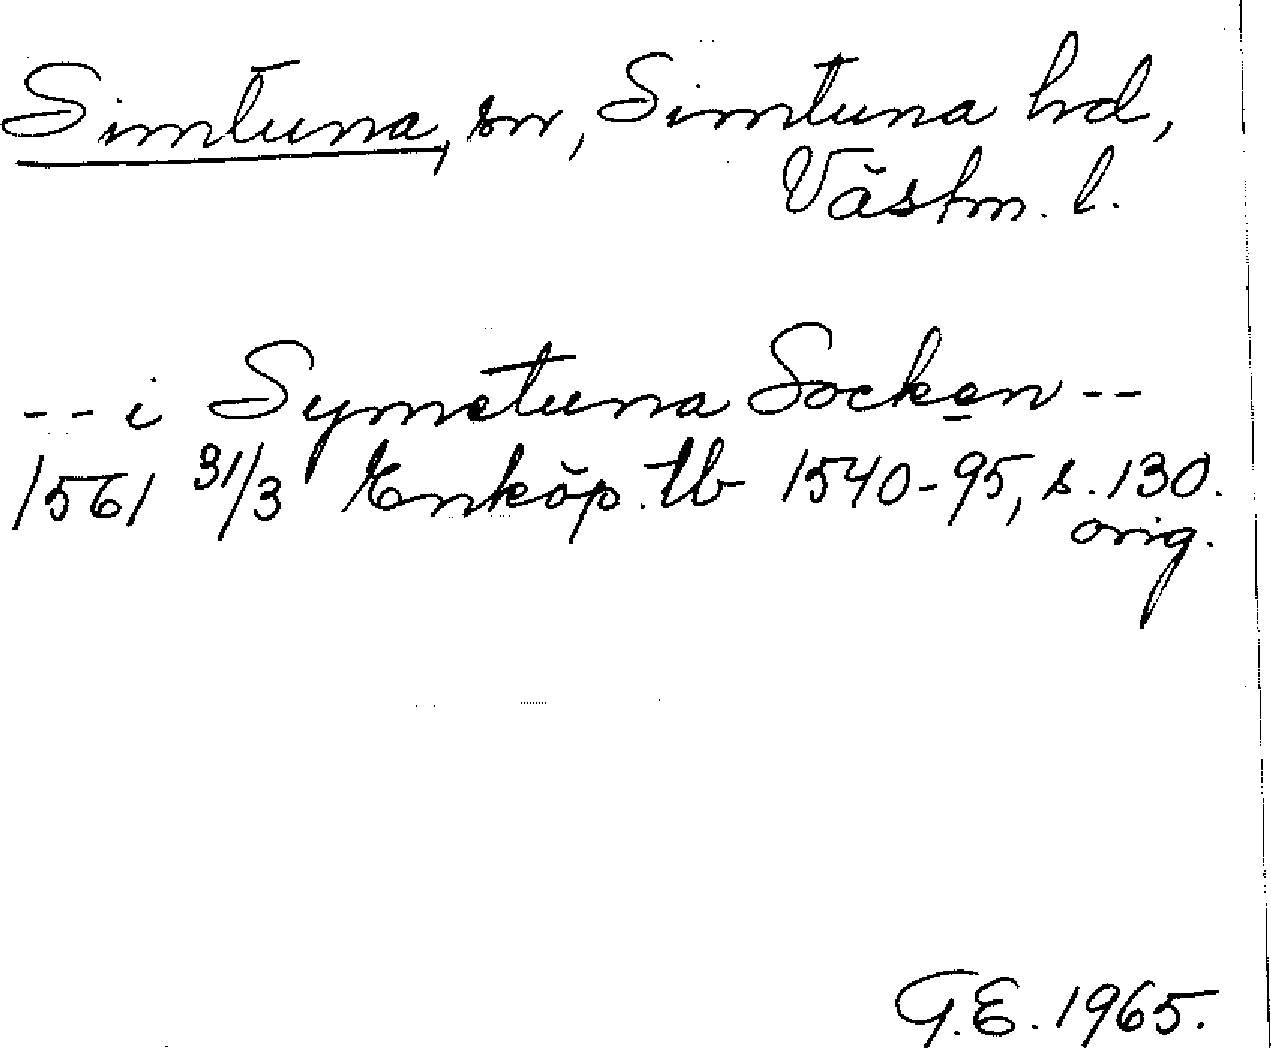 Simtuna, sn, Simtuna hd,
Västm. l.
-- i Symetuna Socken --
1561 31/3 Enköp. tb 1540-95, s. 130.
orig.
G.E. 1965.